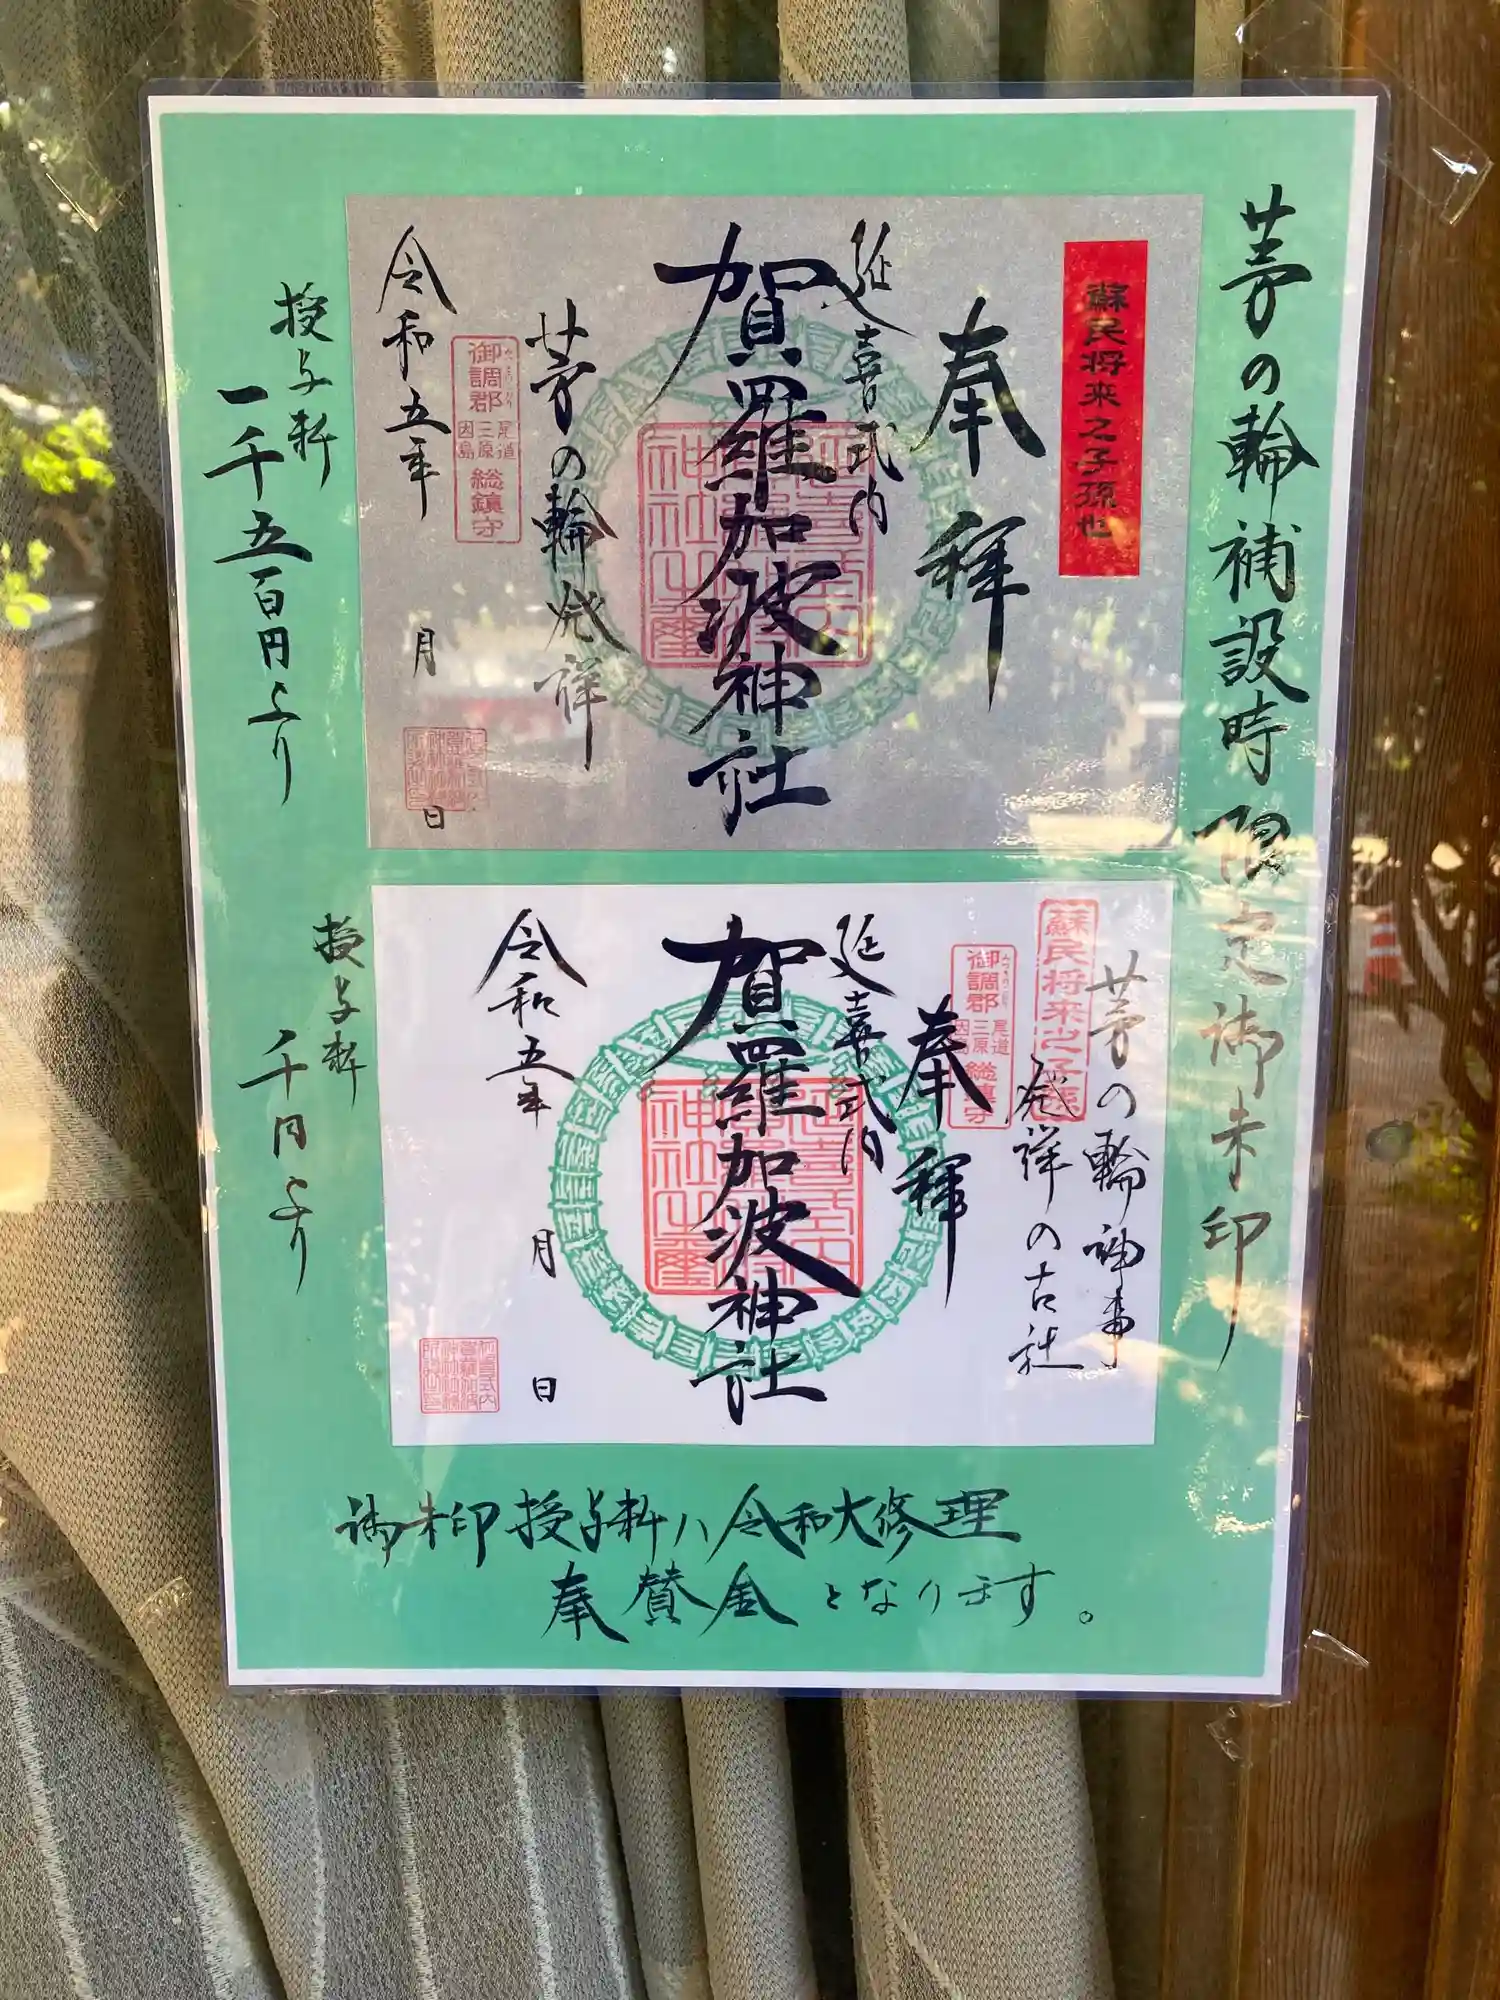 茅の輪補設時限定御朱印
蘇民将来之子孫也
奉拝
延喜式内
賀羅加波神社
茅の輪発祥
御調郡
尾道
三原
因島
総鎮守
令和五年
月
日
授与料
一千五百円より
茅の輪神事
発祥の古社
蘇民将来之子孫
御調郡
尾道
三原
因島
総鎮守
奉拝
延喜式内
賀羅加波神社
令和五年
月
日
授与料
千円より
御朱印授与料ハ令和大修理
奉賛金となります。